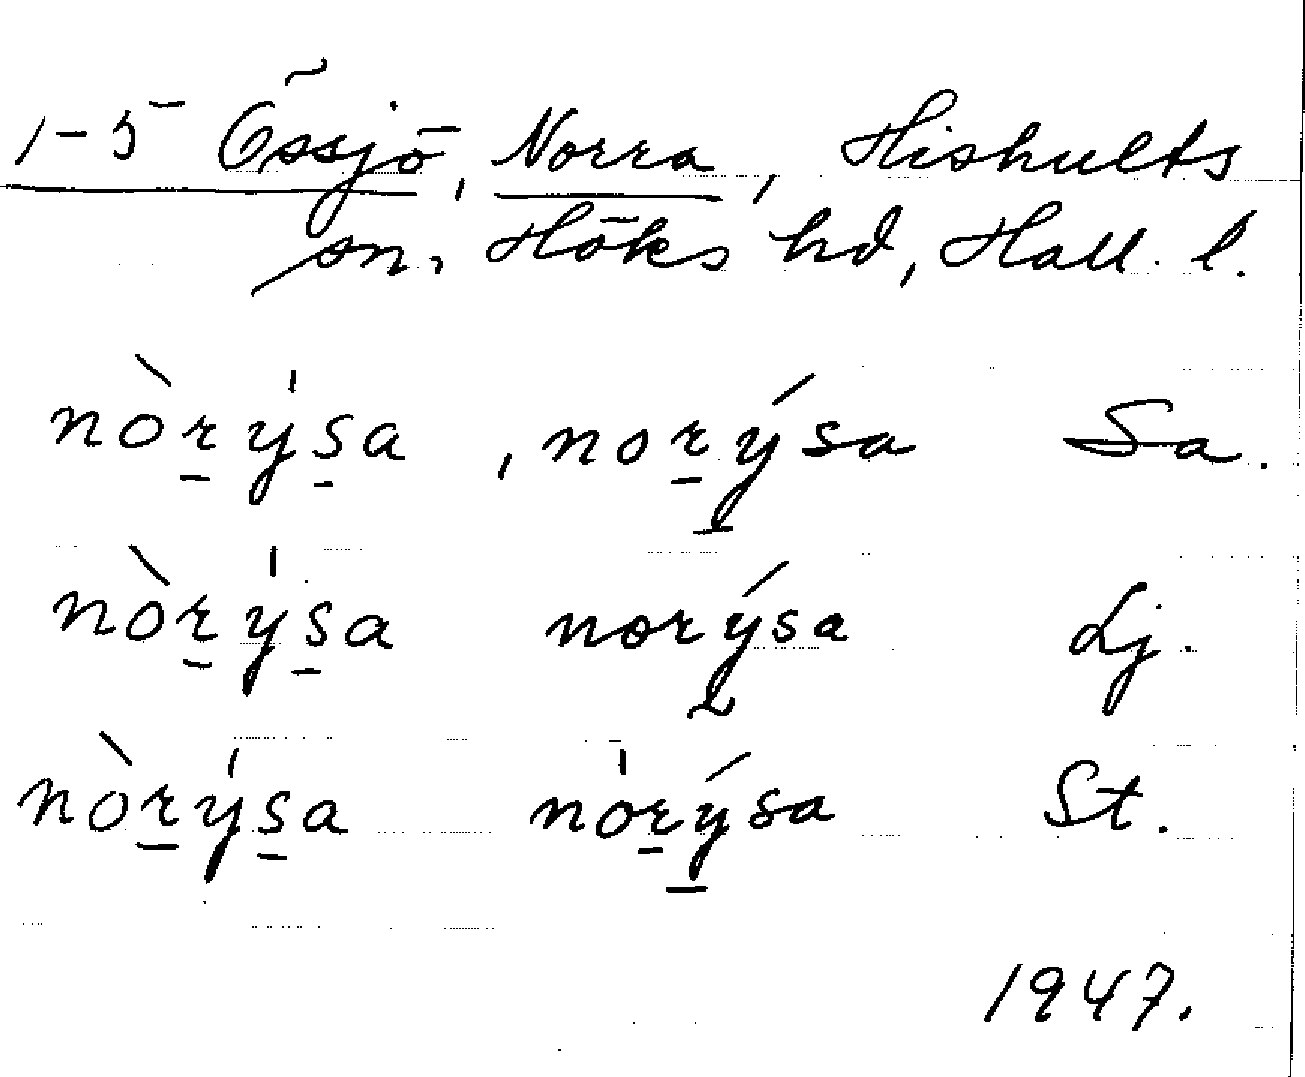 1-5 Össjö, Norra, Hishults
sn, Höks hd, Hall. l.
nòry̍sa, norýsa Sa.
nòry̍sa norýsa Lj.
nòry̍sa no̍rýsa St.
1947.